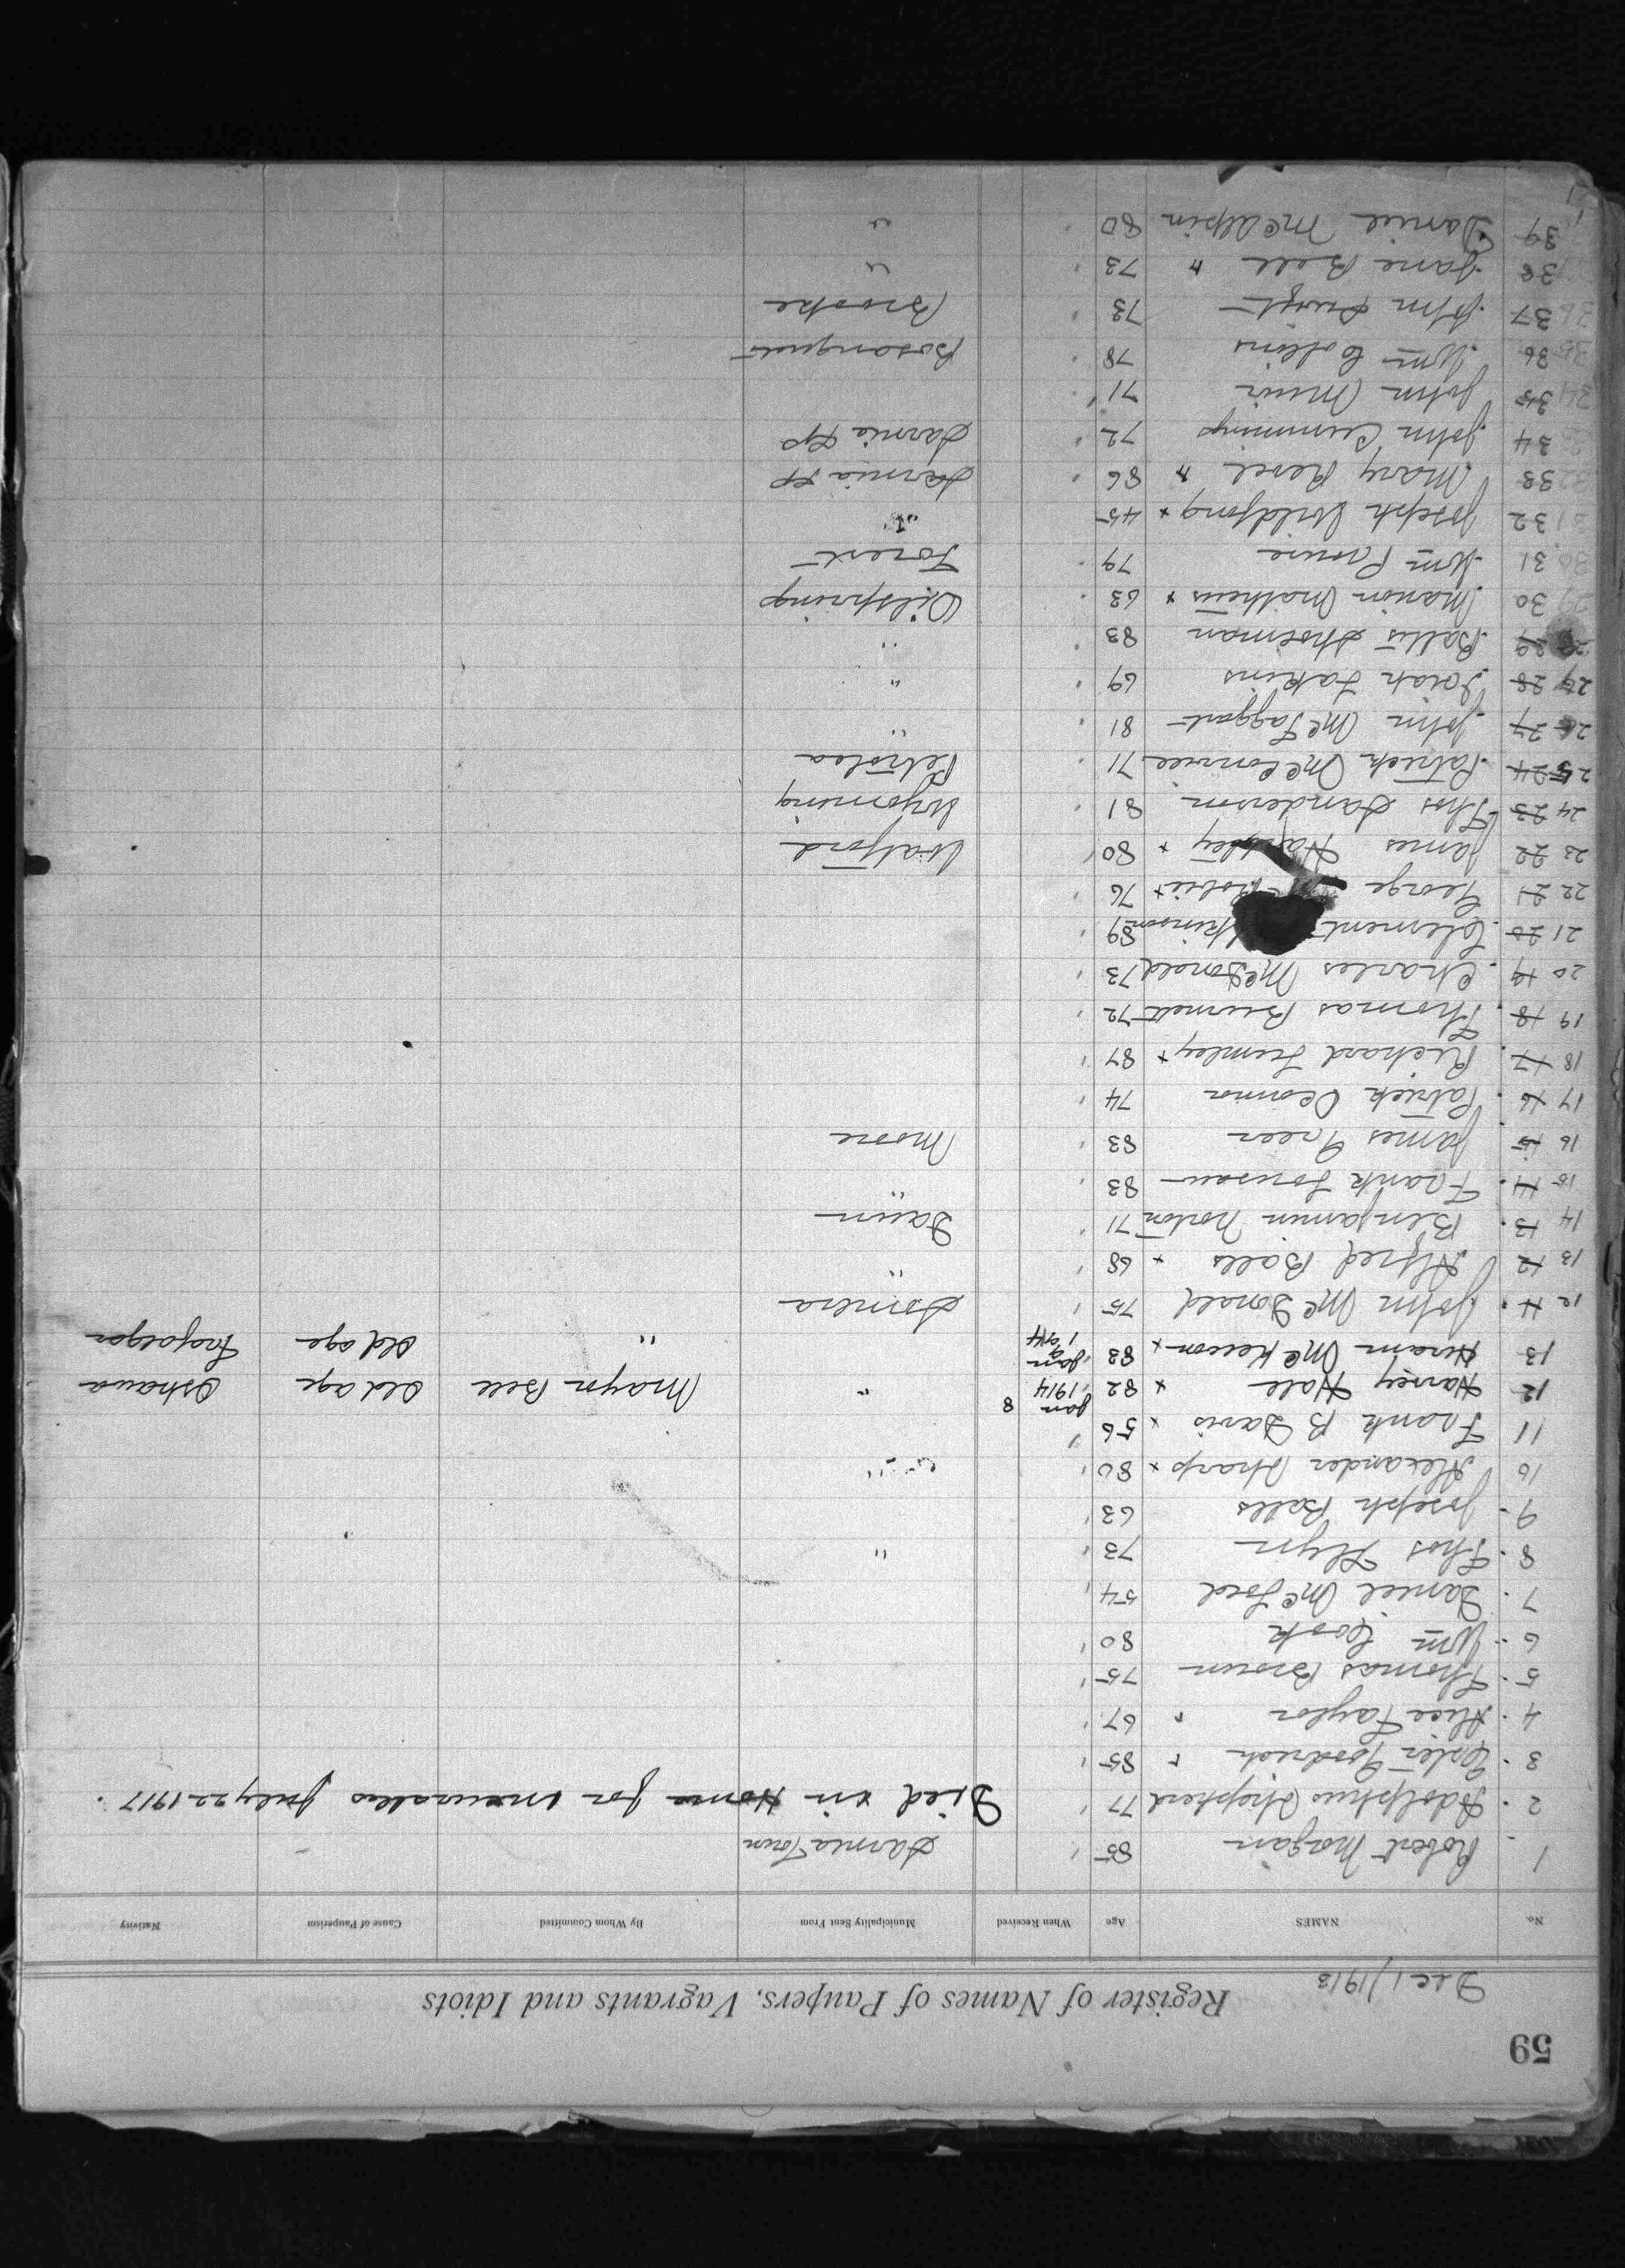 59
Register of Names of Paupers, Vagrants and Idiots
Dec 1/1913
No. NAMES Age When Received Municipality Sent From By Whom Committed Cause of Pauperism Nativity
1 Robert Morgan 85 " Sarnia Town
2. Adolphus Shepherd 77 " Died in Home for Incurables July 22 1917.
3. Goodrich " 85 "
4. Alice Taylor " 67 "
5. Thomas Brown 75 "
6. Wm Cook 80 "
7. Daniel McFord 54 "
8. Thos Flyn 73 " "
9. Joseph Balls 63 "
10 Alexander Sharp x 80 " "
11 Frank B Davis x 56 "
12 Harvey Hall x 82 Jan 1914 8 " Mayor Bell Old age Oshawa
13 Hiram x 83 Jan 9 1914 " Old age Trafalgar
12 11. John McDonald 75 " Sombra
13 12 Alfred Balls x 68 " "
14 13. Benjamin Norton 71 " Dawn
15 14. Frank 83 "
16 15 James Greer 83 " Moore
17 16. Patrick 74 "
18 17. Richard Lumley x 87 "
19 18. Thomas Burnett 72 "
20 19. Charles McDonald 73 "
21 20. Clement 89 "
22 21 George 76 "
23 22 James x 80 " Watford
24 23 Thos Sanderson 81 " Wyoming
25 24. Patrick 71 " Petrolea
26 27 John McTaggart 81 " "
27 28. Isiah 69 " "
28 29 83 " "
29 30 Marion Mathews x 63 " Oilsprings
30 31 Wm 79 " Forest
31 32 Joseph x 45 "
32 33 Mary " 86 " Sarnia Tp
34 John Cummings 72 " Sarnia Tp
34 35 John Muir 71 "
35 36 Wm Collins 78 " Bosanquet
36 37 John 73 " Brooke
38 Jane Bell " 73 " "
39 Daniel McAlpin 80 " "